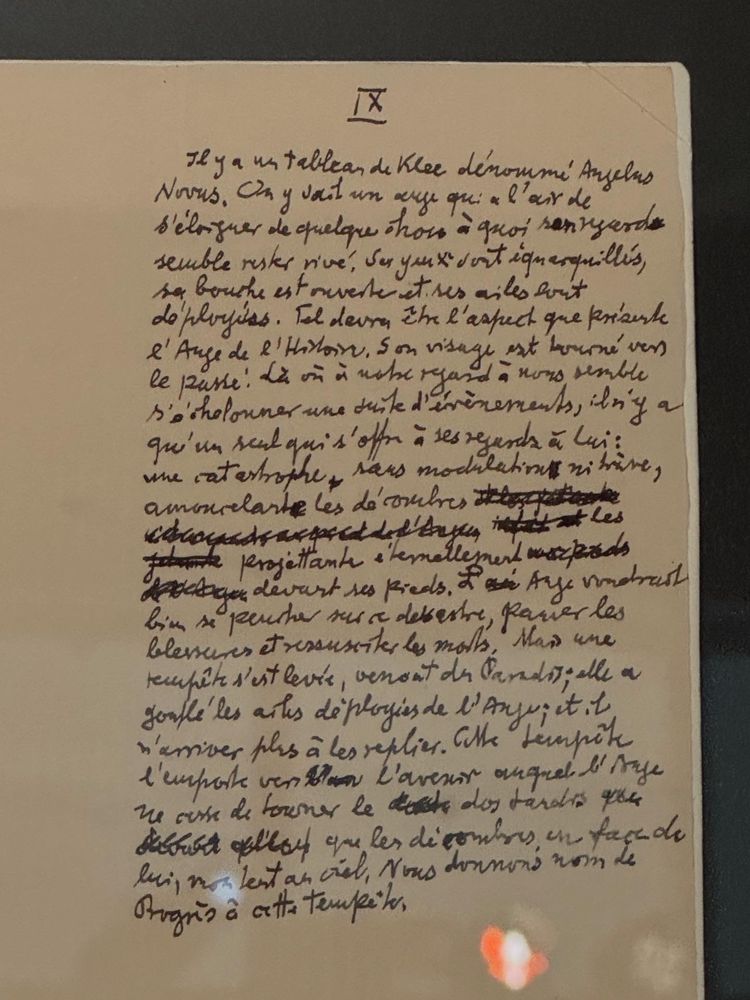 IX
Il y a un tableau de Klee dénommé Angelus
Novus. On y voit un ange qui a l'air de
s'éloigner de quelque chose à quoi son regard
semble rester rivé. Ses yeux sont équarquillés,
sa bouche est ouverte et ses ailes sont
déployées. Tel devra être l'aspect que présente
l'Ange de l'Histoire. Son visage est tourné vers
le passé. Là où à notre regard à nous semble
s'écholonner une suite d'évènements, il n'y a
qu'un seul qui s'offre à ses regards à lui :
une catastrophe, sans modulation ni trève,
amoncelant les décombres
les
projettante éternellement
devant ses pieds. L'Ange voudrait
bien se pencher sur ce desastre, panser les
blessures et ressusciter les morts. Mais une
tempête s'est levée, venant du Paradis; elle a
gonflé les ailes déployées de l'Ange; et il
n'arriver plus à les replier. Cette tempête
l'emporte vers l'avenir auquel l'Ange
ne cesse de tourner le dos tandis que
que les décombres, en face de
lui, montent au ciel. Nous donnons nom de
Progrès à cette tempête.